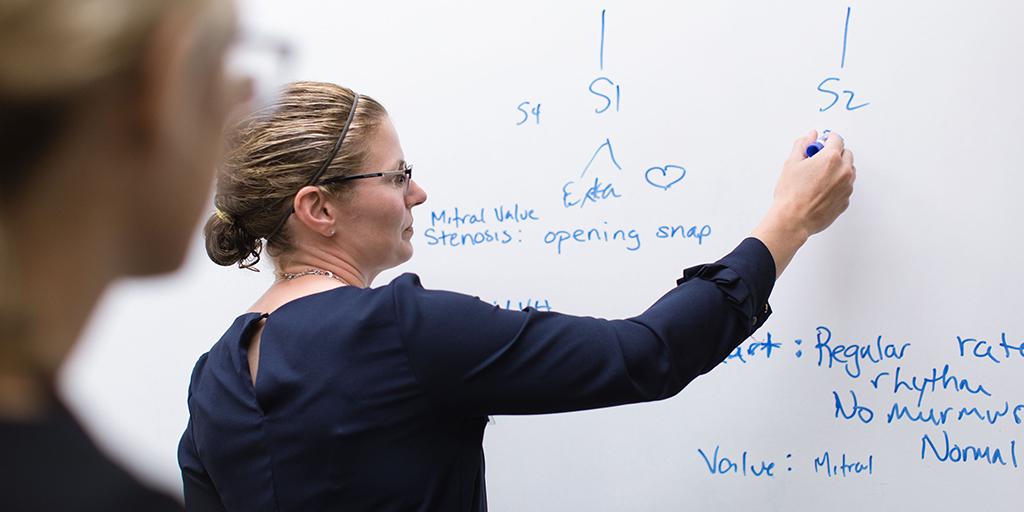 S4 S1 S2
Exta
Mitral Value
Stenosis: opening snap
Regular rate
rhythm
No murmurs
Normal
Value: Mitral